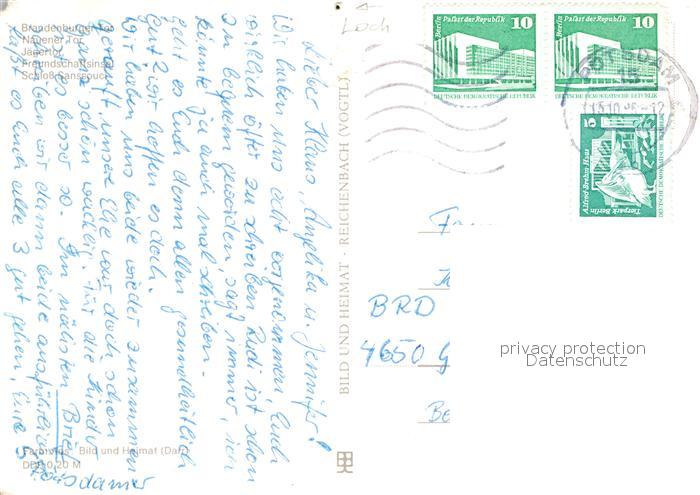 Brandenburger Tor
Nauener Tor
Jägertor
Freundschaftsinsel
Schloß Sanssouci
Lieber Klaus, Angelika u. Jennifer!
Wir haben uns echt vorgenommen, Euch
endlich öfter zu schreiben. Rudi ist schon
so bequem geworden, sagt immer, ich
könnte ja auch mal schreiben.
geht es Euch denn allen gesundheitlich
gut? Wir hoffen es doch.
Wir haben uns beide wieder zusammen
gerauft, unsere Ehe war doch schon
ganz schön wacklig. Für die Kinder
ist es besser so. Im nächsten Brief
wir dann beide ausführlich
Laßt es Euch alle 3 gut gehen, Eure
Potsdamer
Bild und Heimat (Darr)
DDR 0,20 M
BILD UND HEIMAT · REICHENBACH (VOGTL)
Loch
Berlin Palast der Republik 10
DEUTSCHE DEMOKRATISCHE REPUBLIK
Berlin Palast der Republik 10
DEUTSCHE DEMOKRATISCHE REPUBLIK
POTSDAM
5
Alfred-Brehm-Haus
Tierpark Berlin
DEUTSCHE DEMOKRATISCHE REPUBLIK
BRD
4650 G
privacy protection
Datenschutz